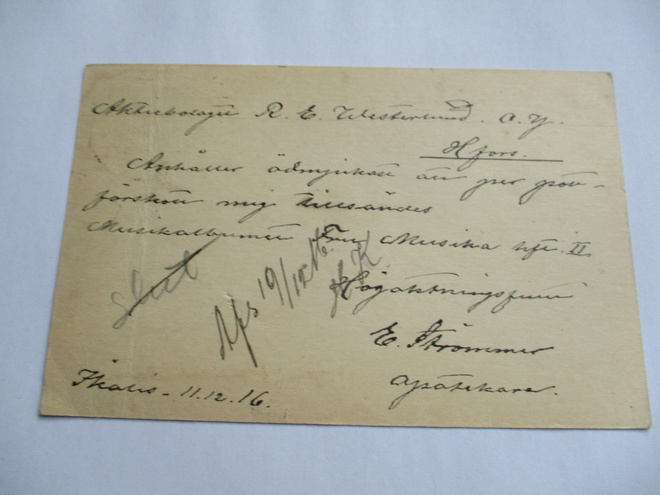 Aktiebolaget R. E. Westerlund. O. Y.
Hfors.
Anhåller ödmjukast att per post-
förskott mig tillsändes
Musikalbumet Fru Musika hft. II
Högaktningsfullt
E. Strömmer
apotekare.
Ikalis - 11.12.16.
slut
Afs 19/12 16.